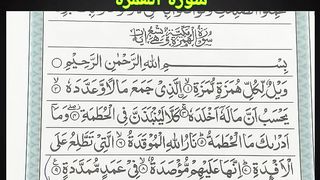 سورة الهمزة
بِسْمِ اللهِ الرَّحْمٰنِ الرَّحِيْمِ
وَيْلٌ لِّكُلِّ هُمَزَةٍ لُّمَزَةِ ۙ﴿۱﴾ الَّذِىْ جَمَعَ مَالًا وَّعَدَّدَهٗ ۙ﴿۲﴾
يَحْسَبُ اَنَّ مَالَهٗۤ اَخْلَدَهٗ ۚ﴿۳﴾ كَلَّا لَيُنْۢبَذَنَّ فِى الْحُطَمَةِ ۖ﴿۴﴾ وَمَاۤ
اَدْرٰىكَ مَا الْحُطَمَةُ ؕ﴿۵﴾ نَارُ اللهِ الْمُوْقَدَةُ ۙ﴿۶﴾ الَّتِىْ تَطَّلِعُ عَلَى
الْاَفْـِٕدَةِ ؕ﴿۷﴾ اِنَّهَا عَلَيْهِمْ مُّؤْصَدَةٌ ۙ﴿۸﴾ فِىْ عَمَدٍ مُّمَدَّدَةٍ ﴿۹﴾